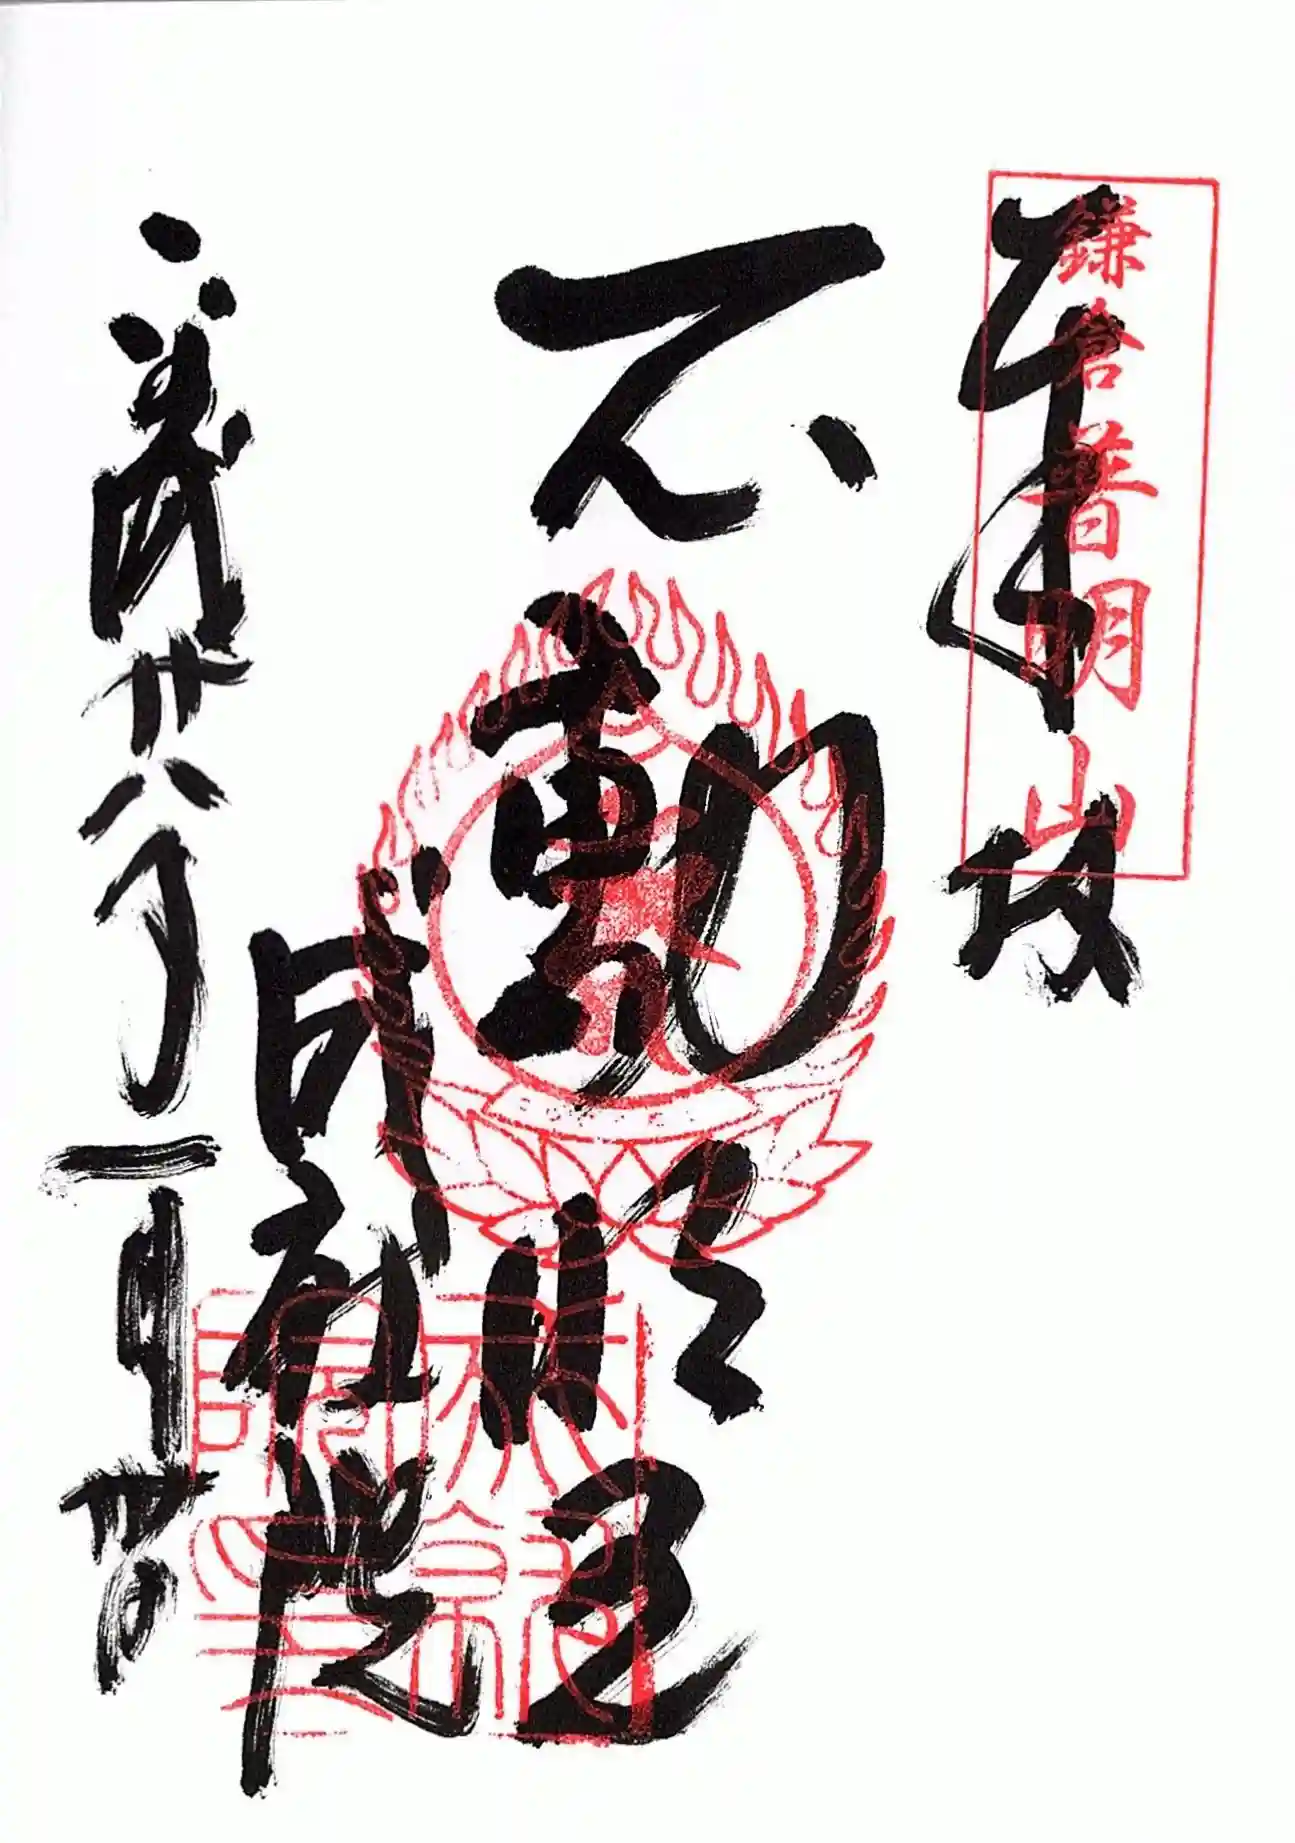 奉拝
鎌倉普明山
不動明王
成就院
平成廿八年一月廿